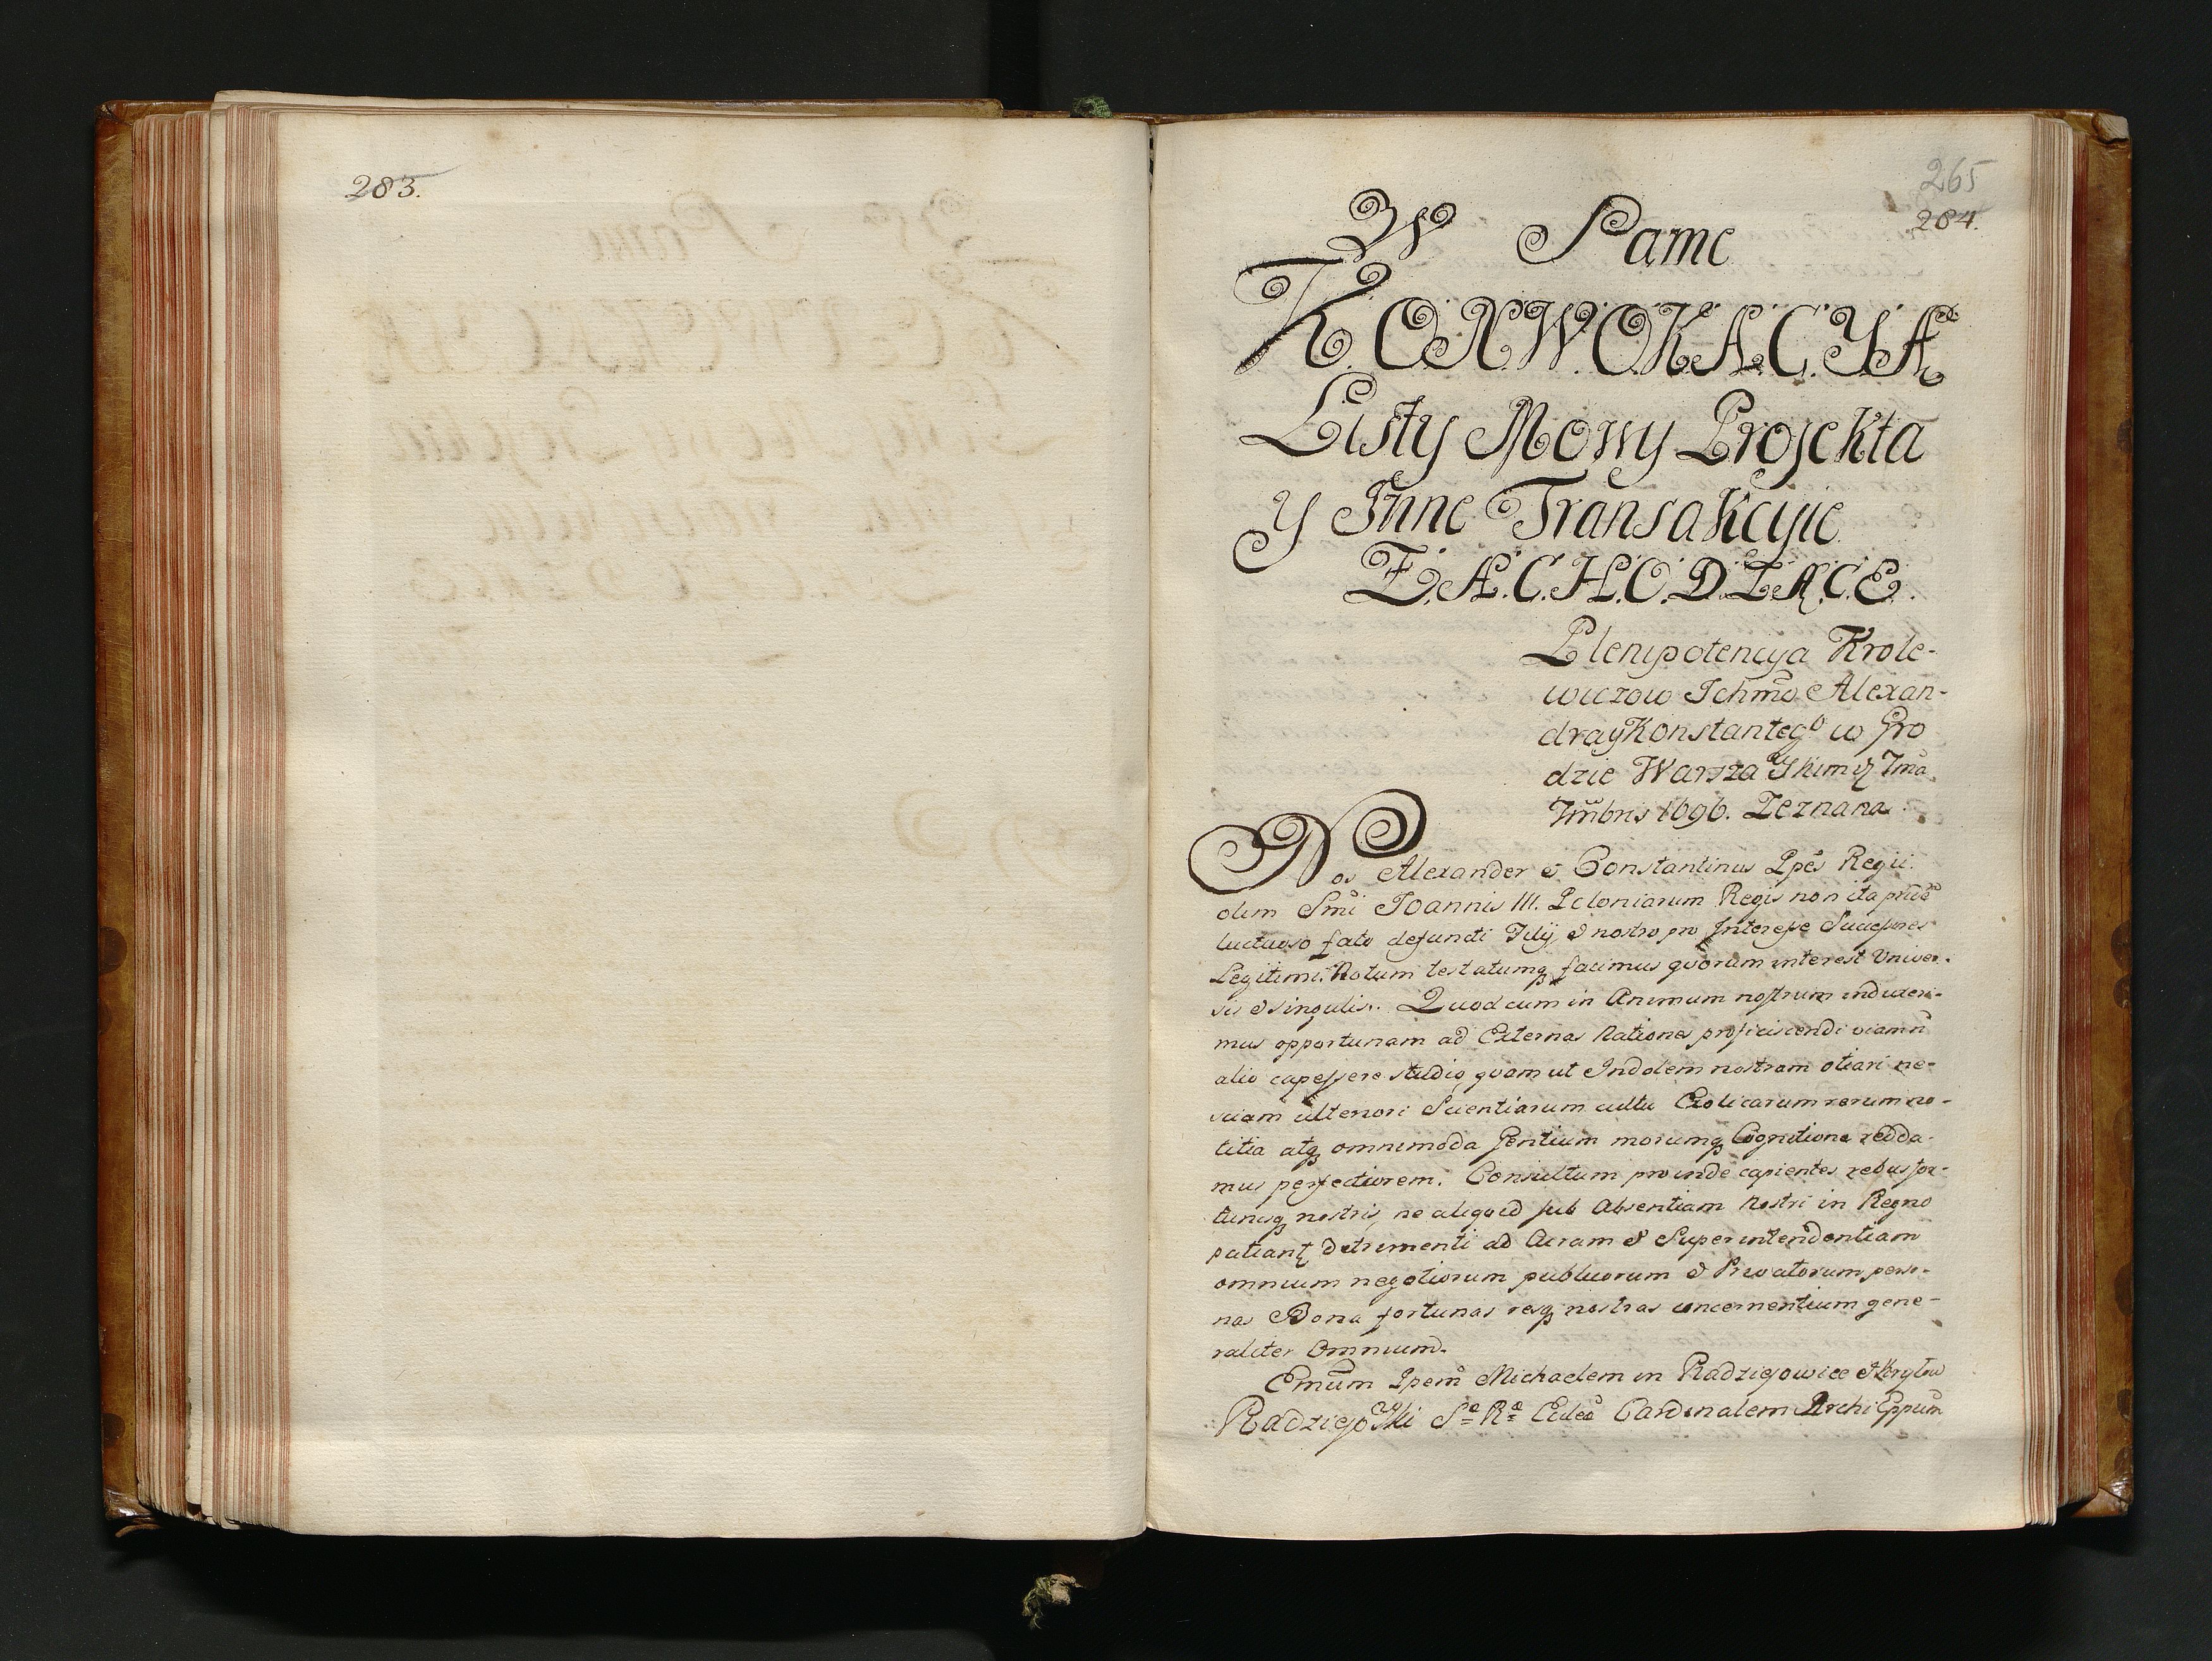 283.
265
284.
W Same
KONWOKACYĄ
Listy Mowy Projekta
y Inne Transakcyie
ZACHODZĄCE.
Plenipotencya Krole-
wiczow Ichmo Alexan-
dra y Konstantego w Gro
dzie Warszawskim 7ma
7mbris 1696. Zeznana.
Nos Alexander & Constantinus Ppes Regii
olim Smi Joannis III. Poloniarum Regis non ita pride
luctuoso fato defuncti Filij, & nostro pro Interesse Successores
Legitimi. Notum testatumq facimus quorum interest Univer-
sis & singulis. Quod cum in Animum nostrum induxeri-
mus opportunam ad Externas Nationes proficiscendi viam n
alio capessere studio, quam ut Indolem nostram otiari ne-
sciam ulteriori Scientiarum cultu Exoticarum rerum no-
titia atq omnimoda Gentium morumq Cognitione redda-
mus perfectiorem. Consultum proinde capientes rebus for-
tunisq nostris, ne aliquid sub Absentiam Nostri in Regno
patiant detrimenti ad Curam & Superintendentiam
omnium negotiorum publicorum & Privatorum perso-
nas Bona fortunas resq nostras concernentium gene-
raliter Omnium.
Emum Ppem Michaelem in Radziejowice & Kryłow
Radziejowski S R Eccleae Cardinalem Archi Eppum